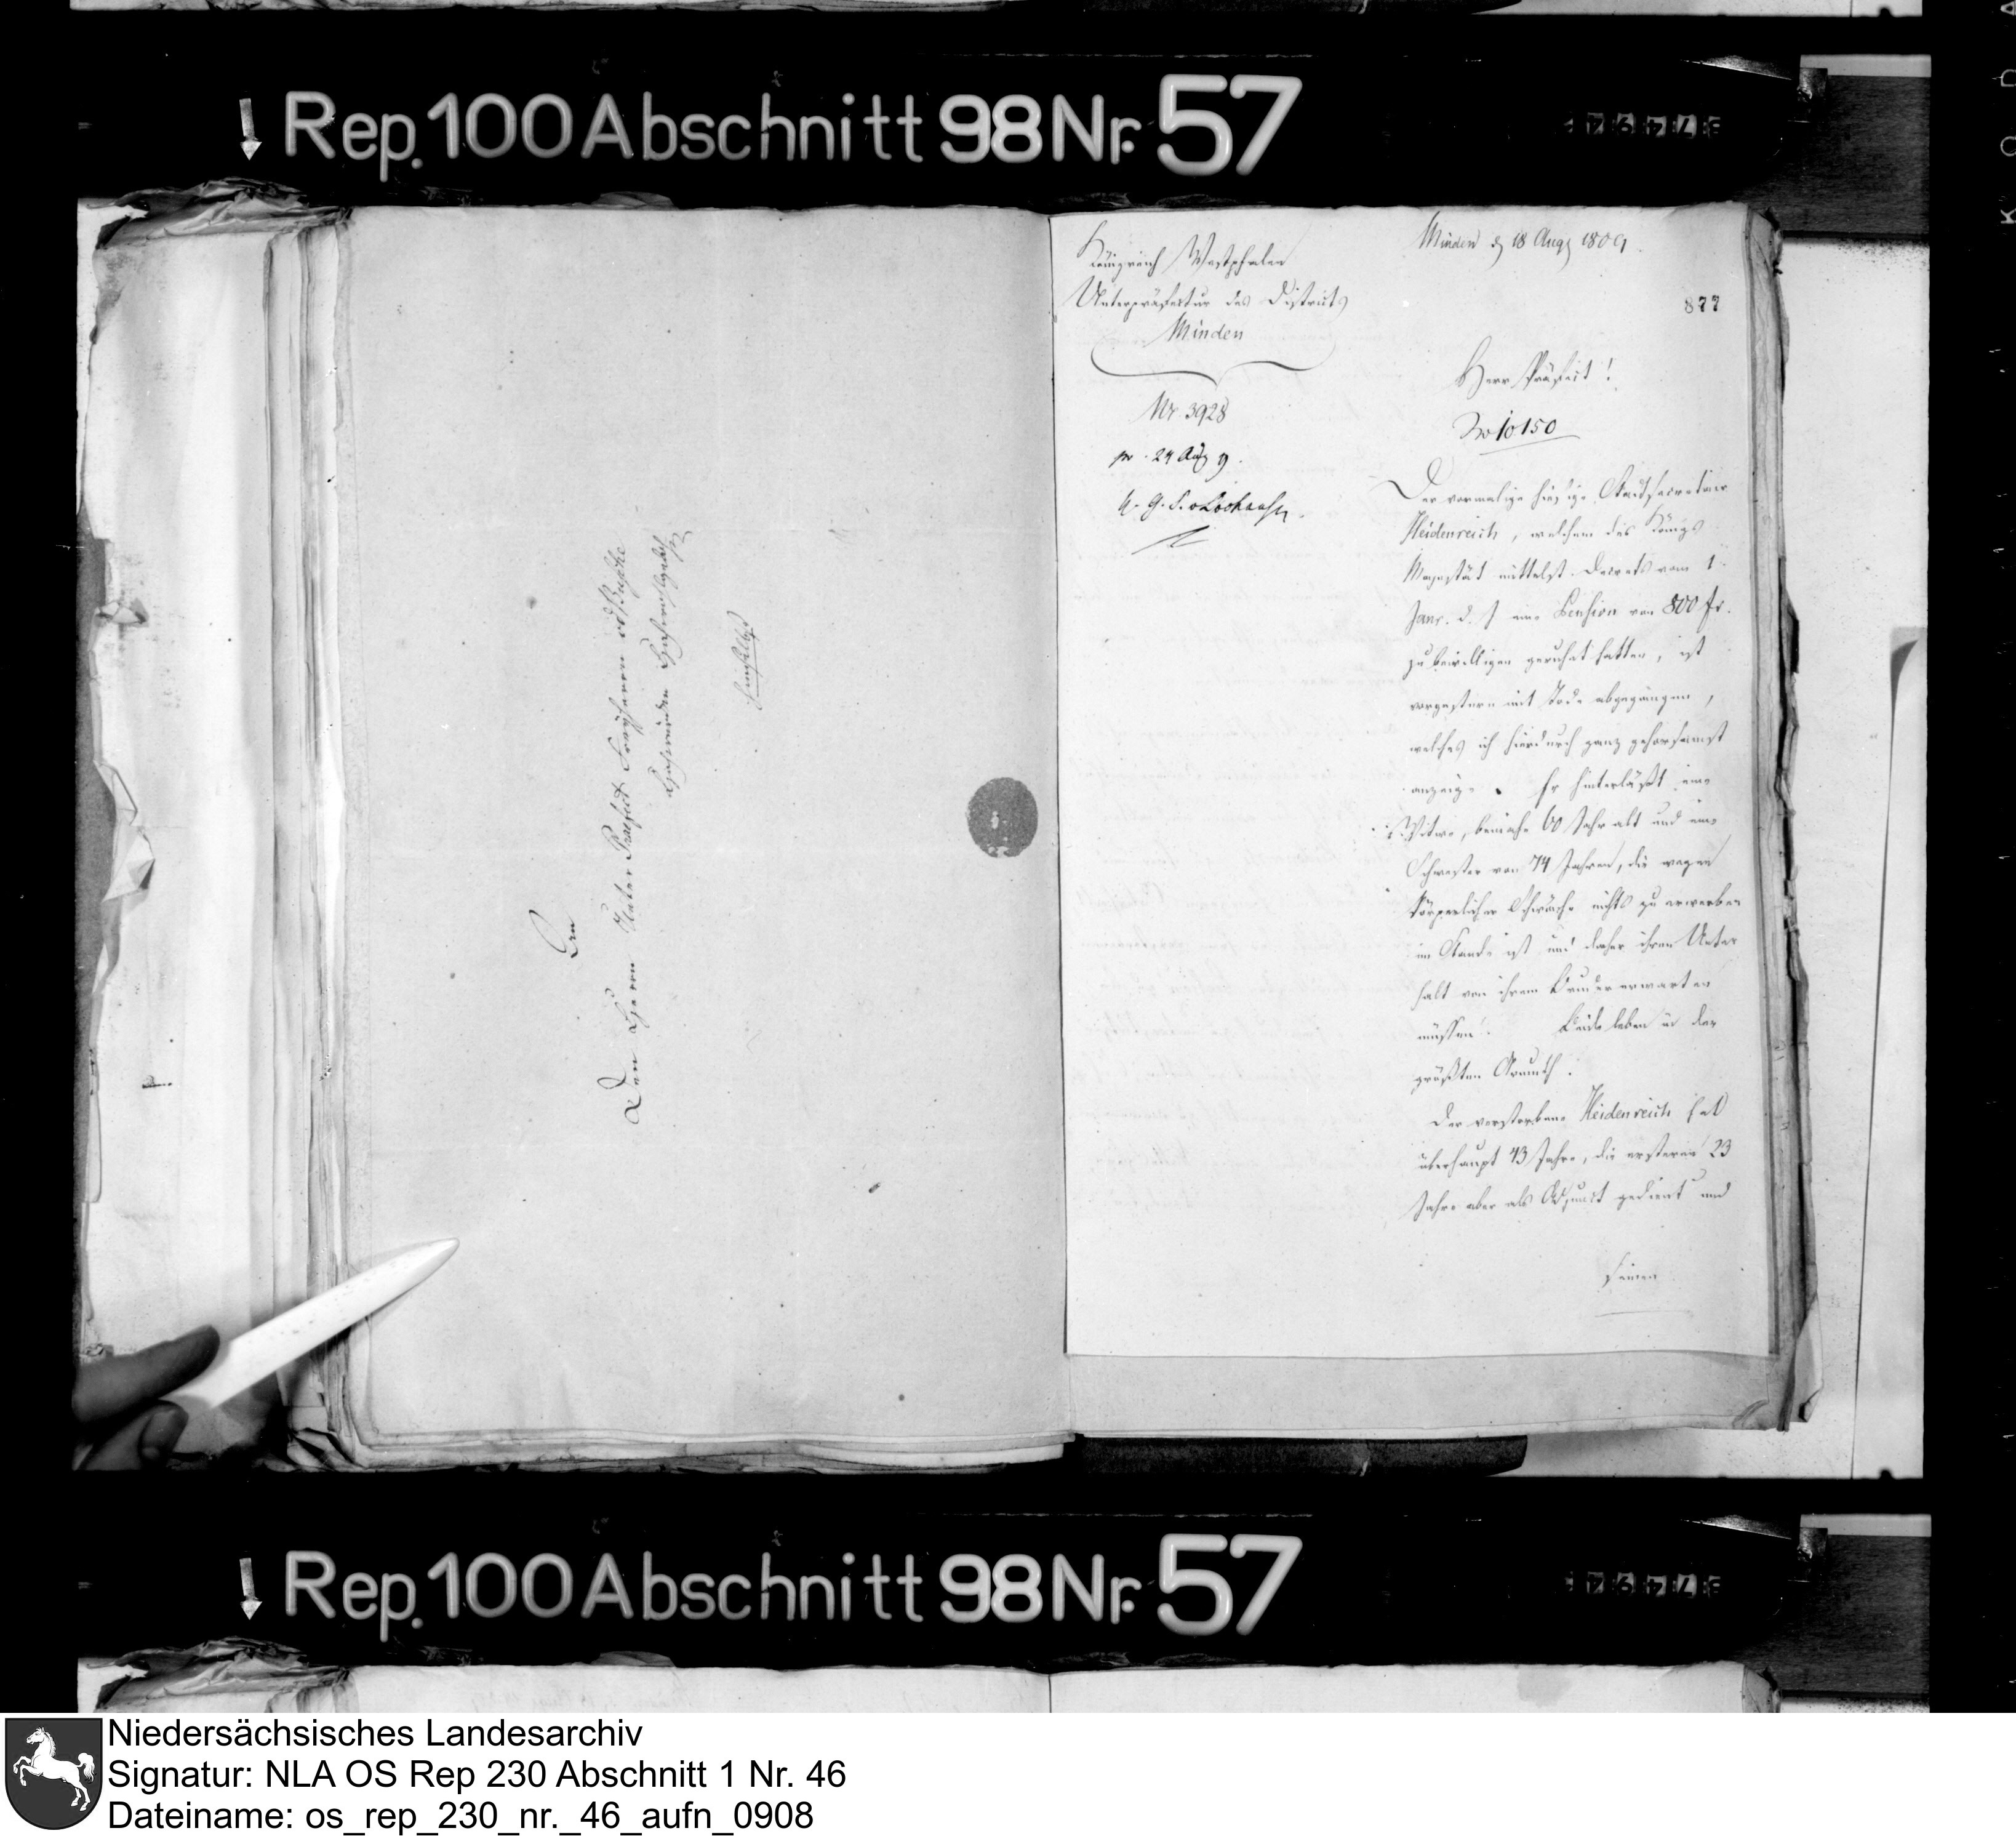 Rep. 100 Abschnitt 98 Nr. 57
An
Den Herrn Unter Praefect Freyherrn
Hochwürden
hieselbst
Königreich Westphalen
Unterpräfectur des Districts
Minden
Nr. 3928
pr. 24 Aug 9.
Minden d 18 Aug 1809.
877
Herr Präfect!
No 10150
Der vormalige hiesige Stadtsecretair
Heidenreich, welchem des Königs
Majestät mittelst Decrets vom 1
Janr. d. J eine Pension von 800 fr.
zu bewilligen geruhet hatten, ist
vorgestern mit Tode abgegangen,
welches ich hierdurch ganz gehorsamst
anzeige. Er hinterläßt eine
Witwe, beinahe 60 Jahr alt und eine
Schwester von 74 Jahren, die wegen
körperlicher Schwäche nichts zu erwerben
im Stande ist und daher ihren Unter
halt von ihrem Bruder erwarten
müssen. Beide leben in der
größten Armuth.
Der verstorbene Heidenreich hat
überhaupt 43 Jahre, die ersteren 23
Jahre aber als Adjunct gedient und
seinen
Rep. 100 Abschnitt 98 Nr. 57
Niedersächsisches Landesarchiv
Signatur: NLA OS Rep 230 Abschnitt 1 Nr. 46
Dateiname: os_rep_230_nr._46_aufn_0908